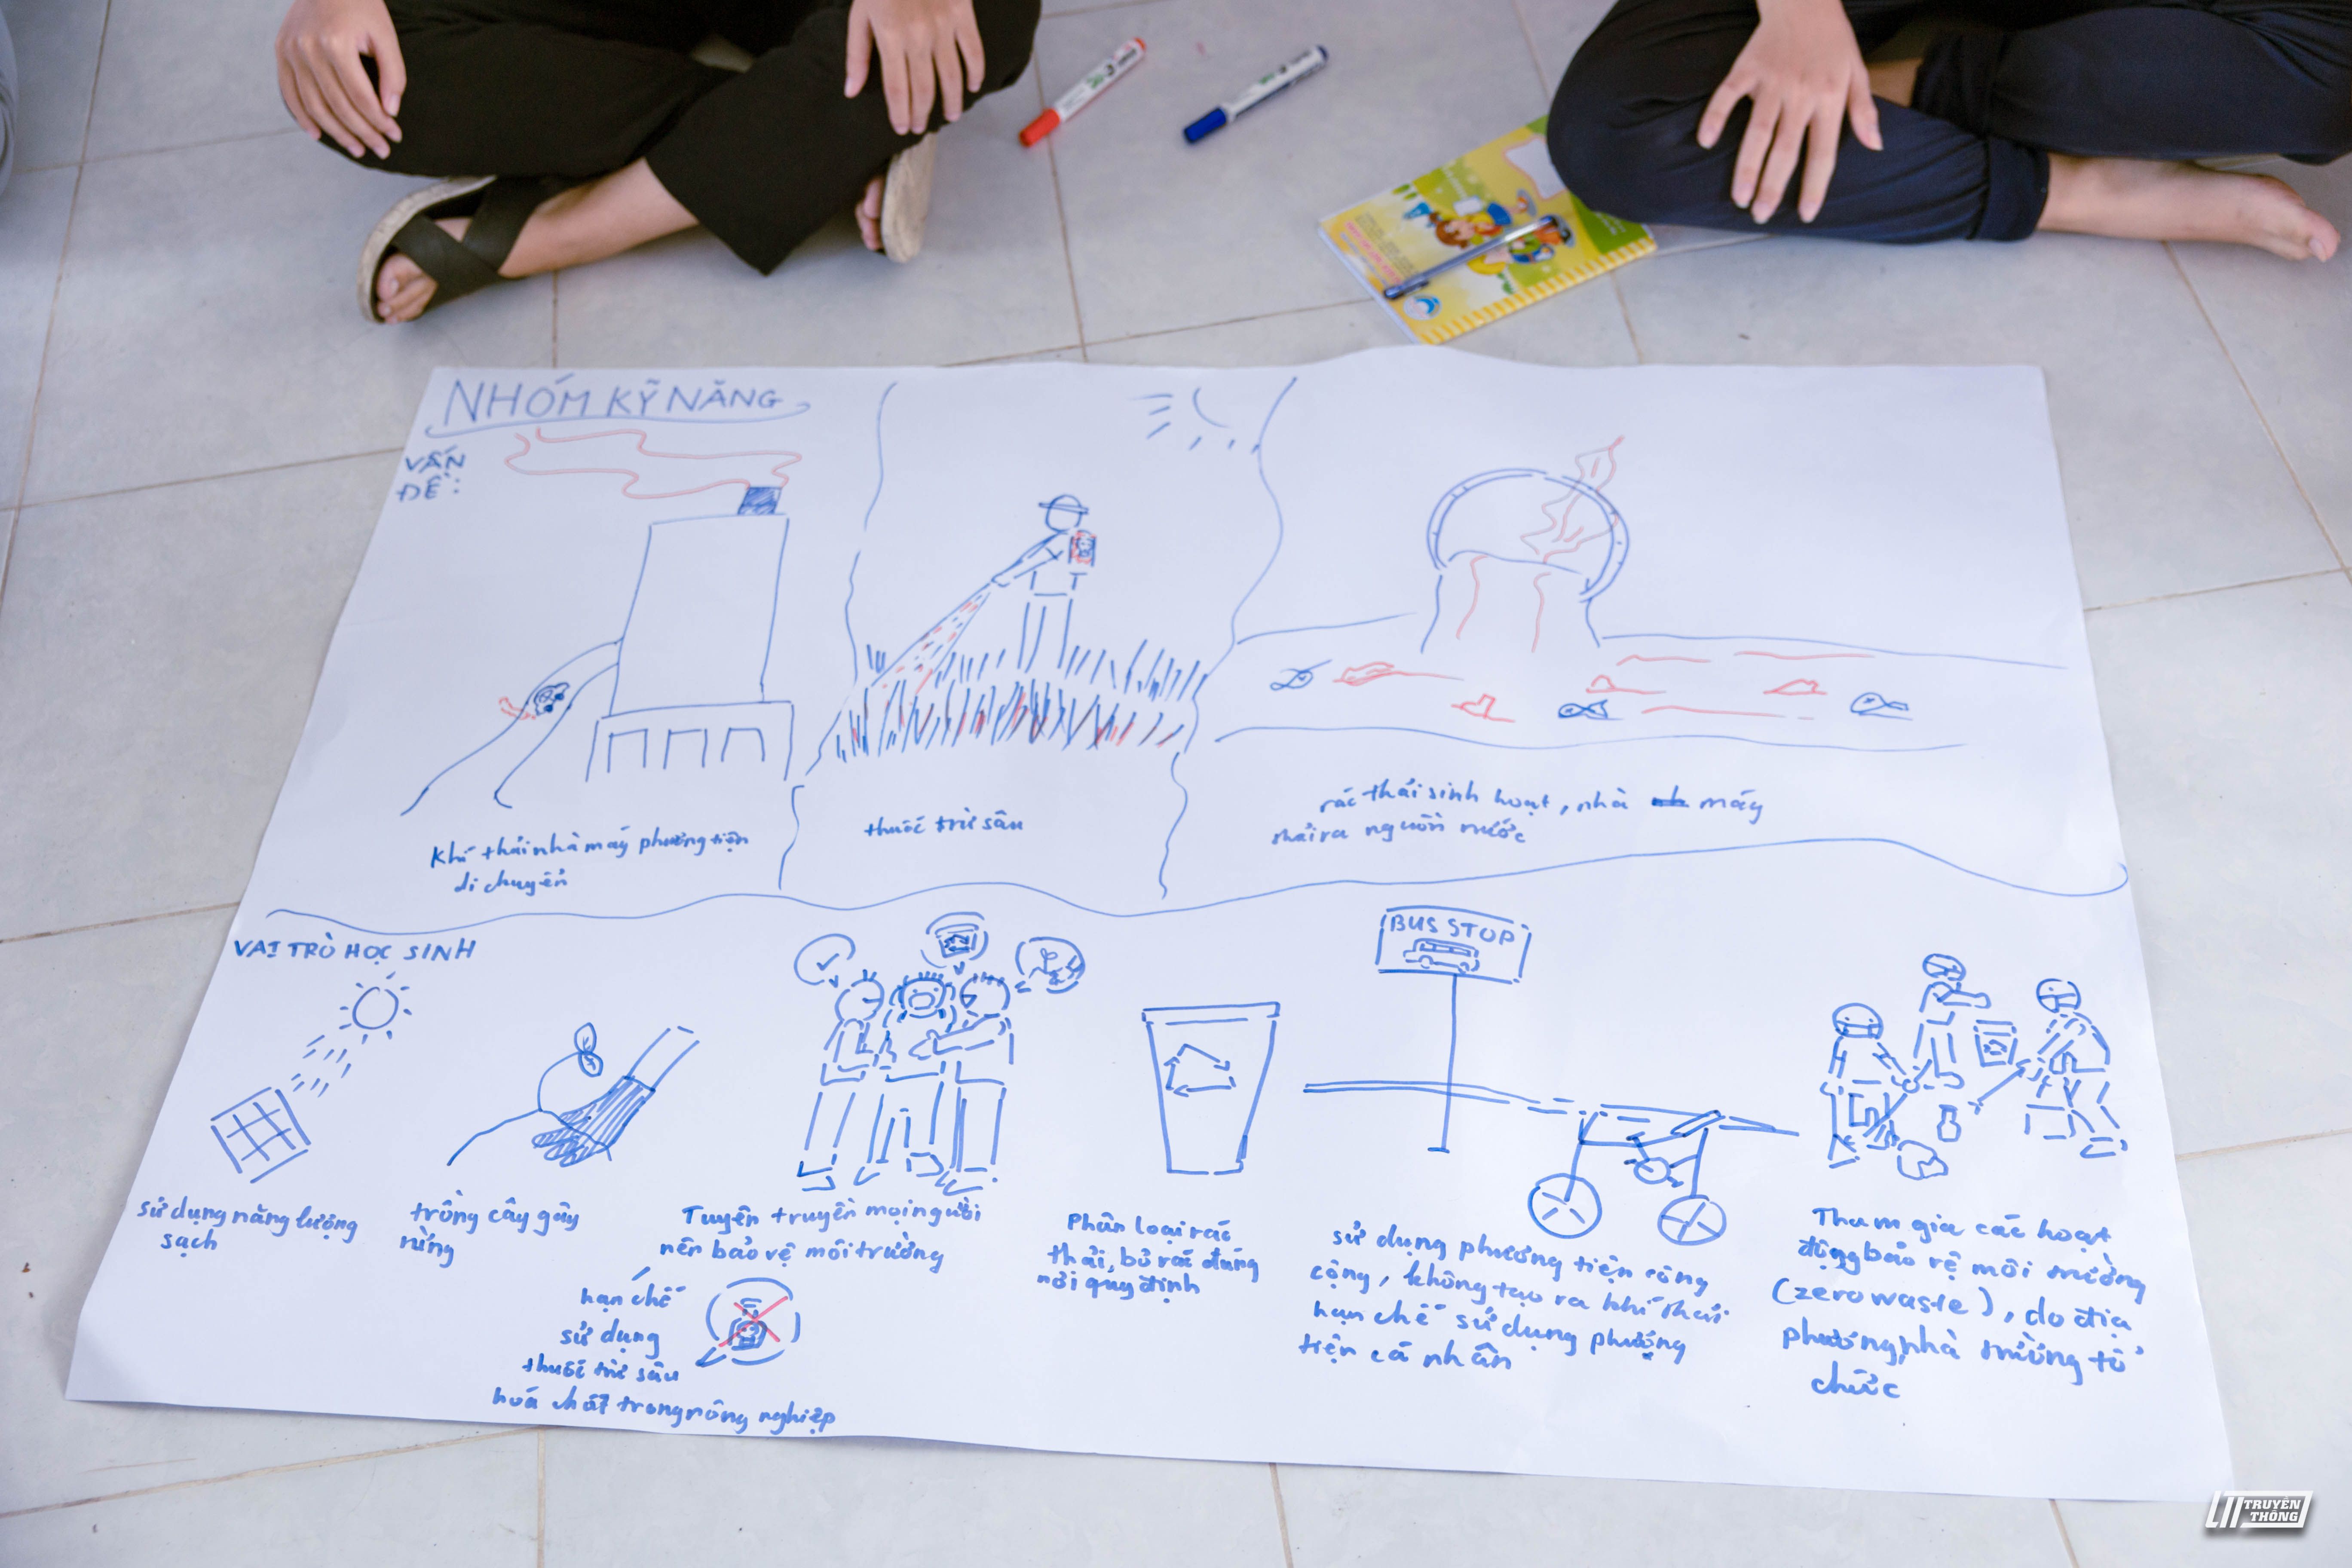 NHÓM KỸ NĂNG
VẤN
ĐỀ:
Khí thải nhà máy phương tiện
di chuyển
thuốc trừ sâu
rác thải sinh hoạt, nhà máy
thải ra nguồn nước
VAI TRÒ HỌC SINH
sử dụng năng lượng
sạch
trồng cây gây
rừng
Tuyên truyền mọi người
nên bảo vệ môi trường
hạn chế
sử dụng
thuốc trừ sâu
hoá chất trong nông nghiệp
Phân loại rác
thải, bỏ rác đúng
nơi quy định
BUS STOP
sử dụng phương tiện công
cộng, không tạo ra khí thải
hạn chế sử dụng phương
tiện cá nhân
Tham gia các hoạt
động bảo vệ môi trường
(zero waste), do địa
phương, nhà trường tổ
chức
TRUYỀN
THÔNG